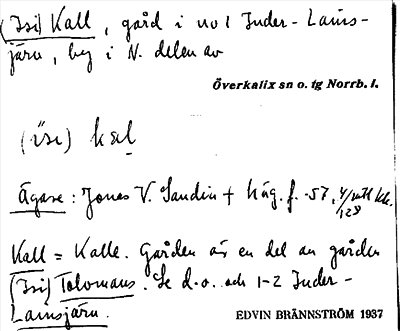 (Isi) Kall, gård i no 1 Inder-Lains-
järv, by i N. delen av
Överkalix sn o. tg Norrb. l.
(ise) kal
Ägare: Jonas V. Sandin + häg. f. -57, 4/128 mtl
Kall = Kalle. Gården är en del av gården
(Isi) Tolomaus. Se d.o. och 1-2 Inder-
Lainsjärv.
EDVIN BRÄNNSTRÖM 1937